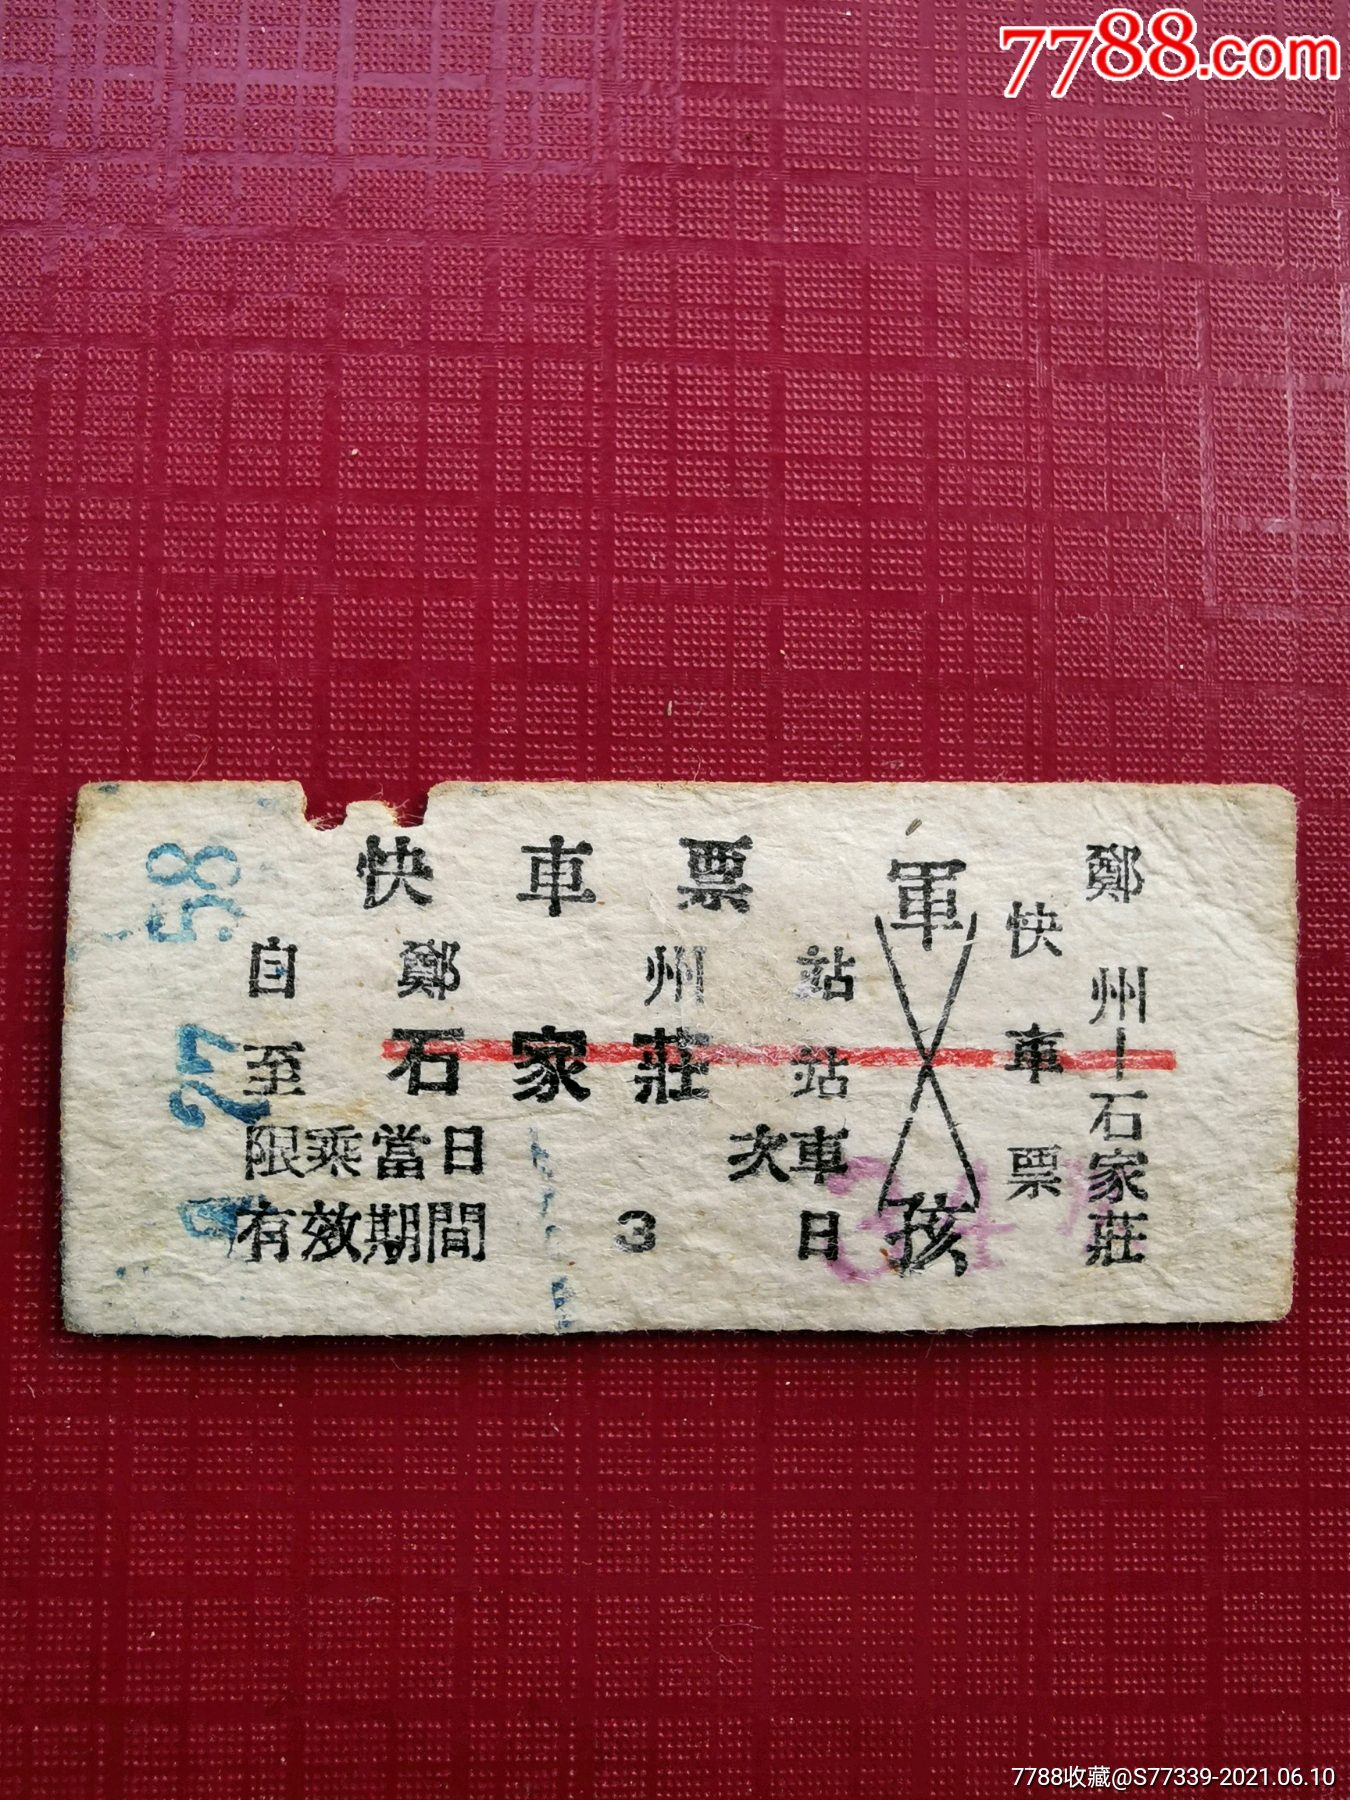 7788.com
快車票
自鄭州站
至石家莊站
限乘當日 次車
有效期間 3 日
軍
孩
快車票
鄭州—石家莊
58
27
7788收藏@S77339-2021.06.10